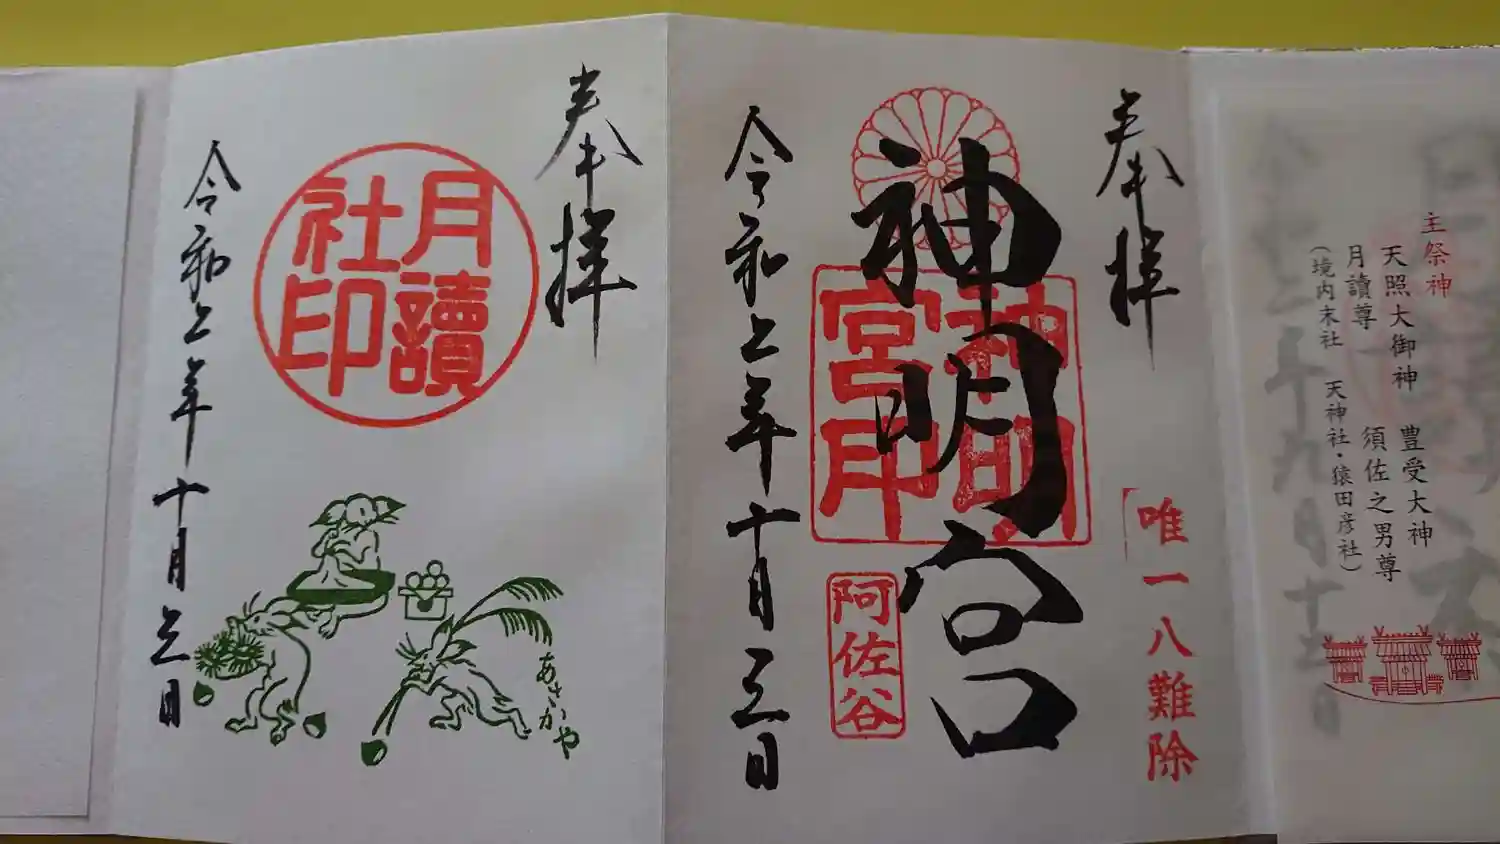 主祭神
天照大御神　豊受大神
月讀尊　須佐之男尊
（境内末社　天神社・猿田彦社）
奉拝
唯一八難除
神明宮
神明宮印
阿佐谷
令和二年十月三日
奉拝
月讀社印
令和二年十月三日
あさがや